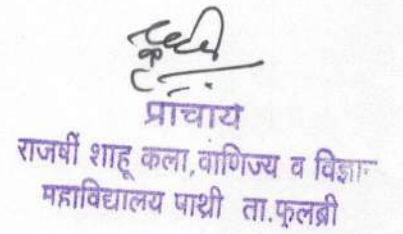 प्राचार्य
राजर्षी शाहू कला,वाणिज्य व विज्ञान
महाविद्यालय पाथ्री ता.फुलंब्री